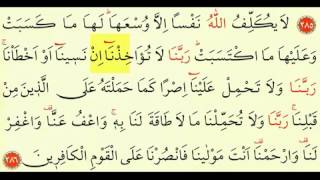 ٢٨٥ لَا يُكَلِّفُ اللّٰهُ نَفْسًا اِلَّا وُسْعَهَا لَهَا مَا كَسَبَتْ
وَعَلَيْهَا مَا اكْتَسَبَتْ رَبَّنَا لَا تُؤَاخِذْنَا اِنْ نَسِينَا اَوْ اَخْطَأْنَا
رَبَّنَا وَلَا تَحْمِلْ عَلَيْنَا اِصْرًا كَمَا حَمَلْتَهُ عَلَى الَّذِينَ مِنْ
قَبْلِنَا رَبَّنَا وَلَا تُحَمِّلْنَا مَا لَا طَاقَةَ لَنَا بِهِ وَاعْفُ عَنَّا وَاغْفِرْ
لَنَا وَارْحَمْنَا اَنْتَ مَوْلٰينَا فَانْصُرْنَا عَلَى الْقَوْمِ الْكَافِرِينَ ٢٨٦